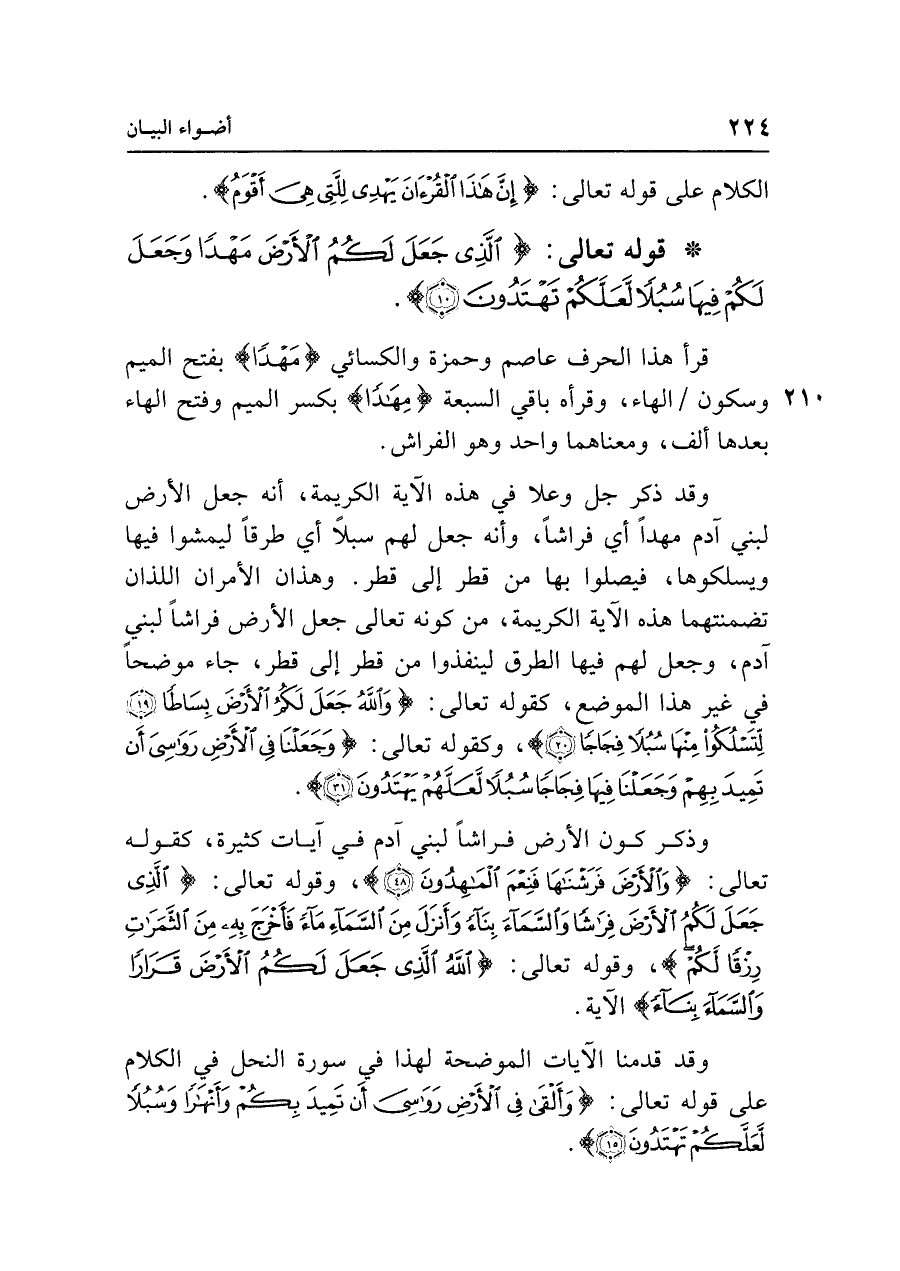 ٢٢٤ أضـواء البيـان
الكلام على قوله تعالى: ﴿إِنَّ هَٰذَا ٱلْقُرْءَانَ يَهْدِى لِلَّتِى هِىَ أَقْوَمُ﴾.
* قوله تعالى: ﴿ٱلَّذِى جَعَلَ لَكُمُ ٱلْأَرْضَ مَهْدًا وَجَعَلَ
لَكُمْ فِيهَا سُبُلًا لَّعَلَّكُمْ تَهْتَدُونَ ١٠﴾.
قرأ هذا الحرف عاصم وحمزة والكسائي ﴿مَهْدًا﴾ بفتح الميم
٢١٠ وسكون / الهاء، وقرأه باقي السبعة ﴿مِهَٰدًا﴾ بكسر الميم وفتح الهاء
بعدها ألف، ومعناهما واحد وهو الفراش.
وقد ذكر جل وعلا في هذه الآية الكريمة، أنه جعل الأرض
لبني آدم مهداً أي فراشاً، وأنه جعل لهم سبلاً أي طرقاً ليمشوا فيها
ويسلكوها، فيصلوا بها من قطر إلى قطر. وهذان الأمران اللذان
تضمنتهما هذه الآية الكريمة، من كونه تعالى جعل الأرض فراشاً لبني
آدم، وجعل لهم فيها الطرق لينفذوا من قطر إلى قطر، جاء موضحاً
في غير هذا الموضع، كقوله تعالى: ﴿وَٱللَّهُ جَعَلَ لَكُمُ ٱلْأَرْضَ بِسَاطًا ١٩
لِّتَسْلُكُوا۟ مِنْهَا سُبُلًا فِجَاجًا ٢٠﴾، وكقوله تعالى: ﴿وَجَعَلْنَا فِى ٱلْأَرْضِ رَوَٰسِىَ أَن
تَمِيدَ بِهِمْ وَجَعَلْنَا فِيهَا فِجَاجًا سُبُلًا لَّعَلَّهُمْ يَهْتَدُونَ ٣١﴾.
وذكـر كـون الأرض فـراشاً لبني آدم فـي آيـات كثيرة، كقـولـه
تعالى: ﴿وَٱلْأَرْضَ فَرَشْنَٰهَا فَنِعْمَ ٱلْمَٰهِدُونَ ٤٨﴾، وقوله تعالى: ﴿ٱلَّذِى
جَعَلَ لَكُمُ ٱلْأَرْضَ فِرَٰشًا وَٱلسَّمَآءَ بِنَآءً وَأَنزَلَ مِنَ ٱلسَّمَآءِ مَآءً فَأَخْرَجَ بِهِۦ مِنَ ٱلثَّمَرَٰتِ
رِزْقًا لَّكُمْ ۖ﴾، وقوله تعالى: ﴿ٱللَّهُ ٱلَّذِى جَعَلَ لَكُمُ ٱلْأَرْضَ قَرَارًا
وَٱلسَّمَآءَ بِنَآءً﴾ الآية.
وقد قدمنا الآيات الموضحة لهذا في سورة النحل في الكلام
على قوله تعالى: ﴿وَأَلْقَىٰ فِى ٱلْأَرْضِ رَوَٰسِىَ أَن تَمِيدَ بِكُمْ وَأَنْهَٰرًا وَسُبُلًا
لَّعَلَّكُمْ تَهْتَدُونَ ١٥﴾.